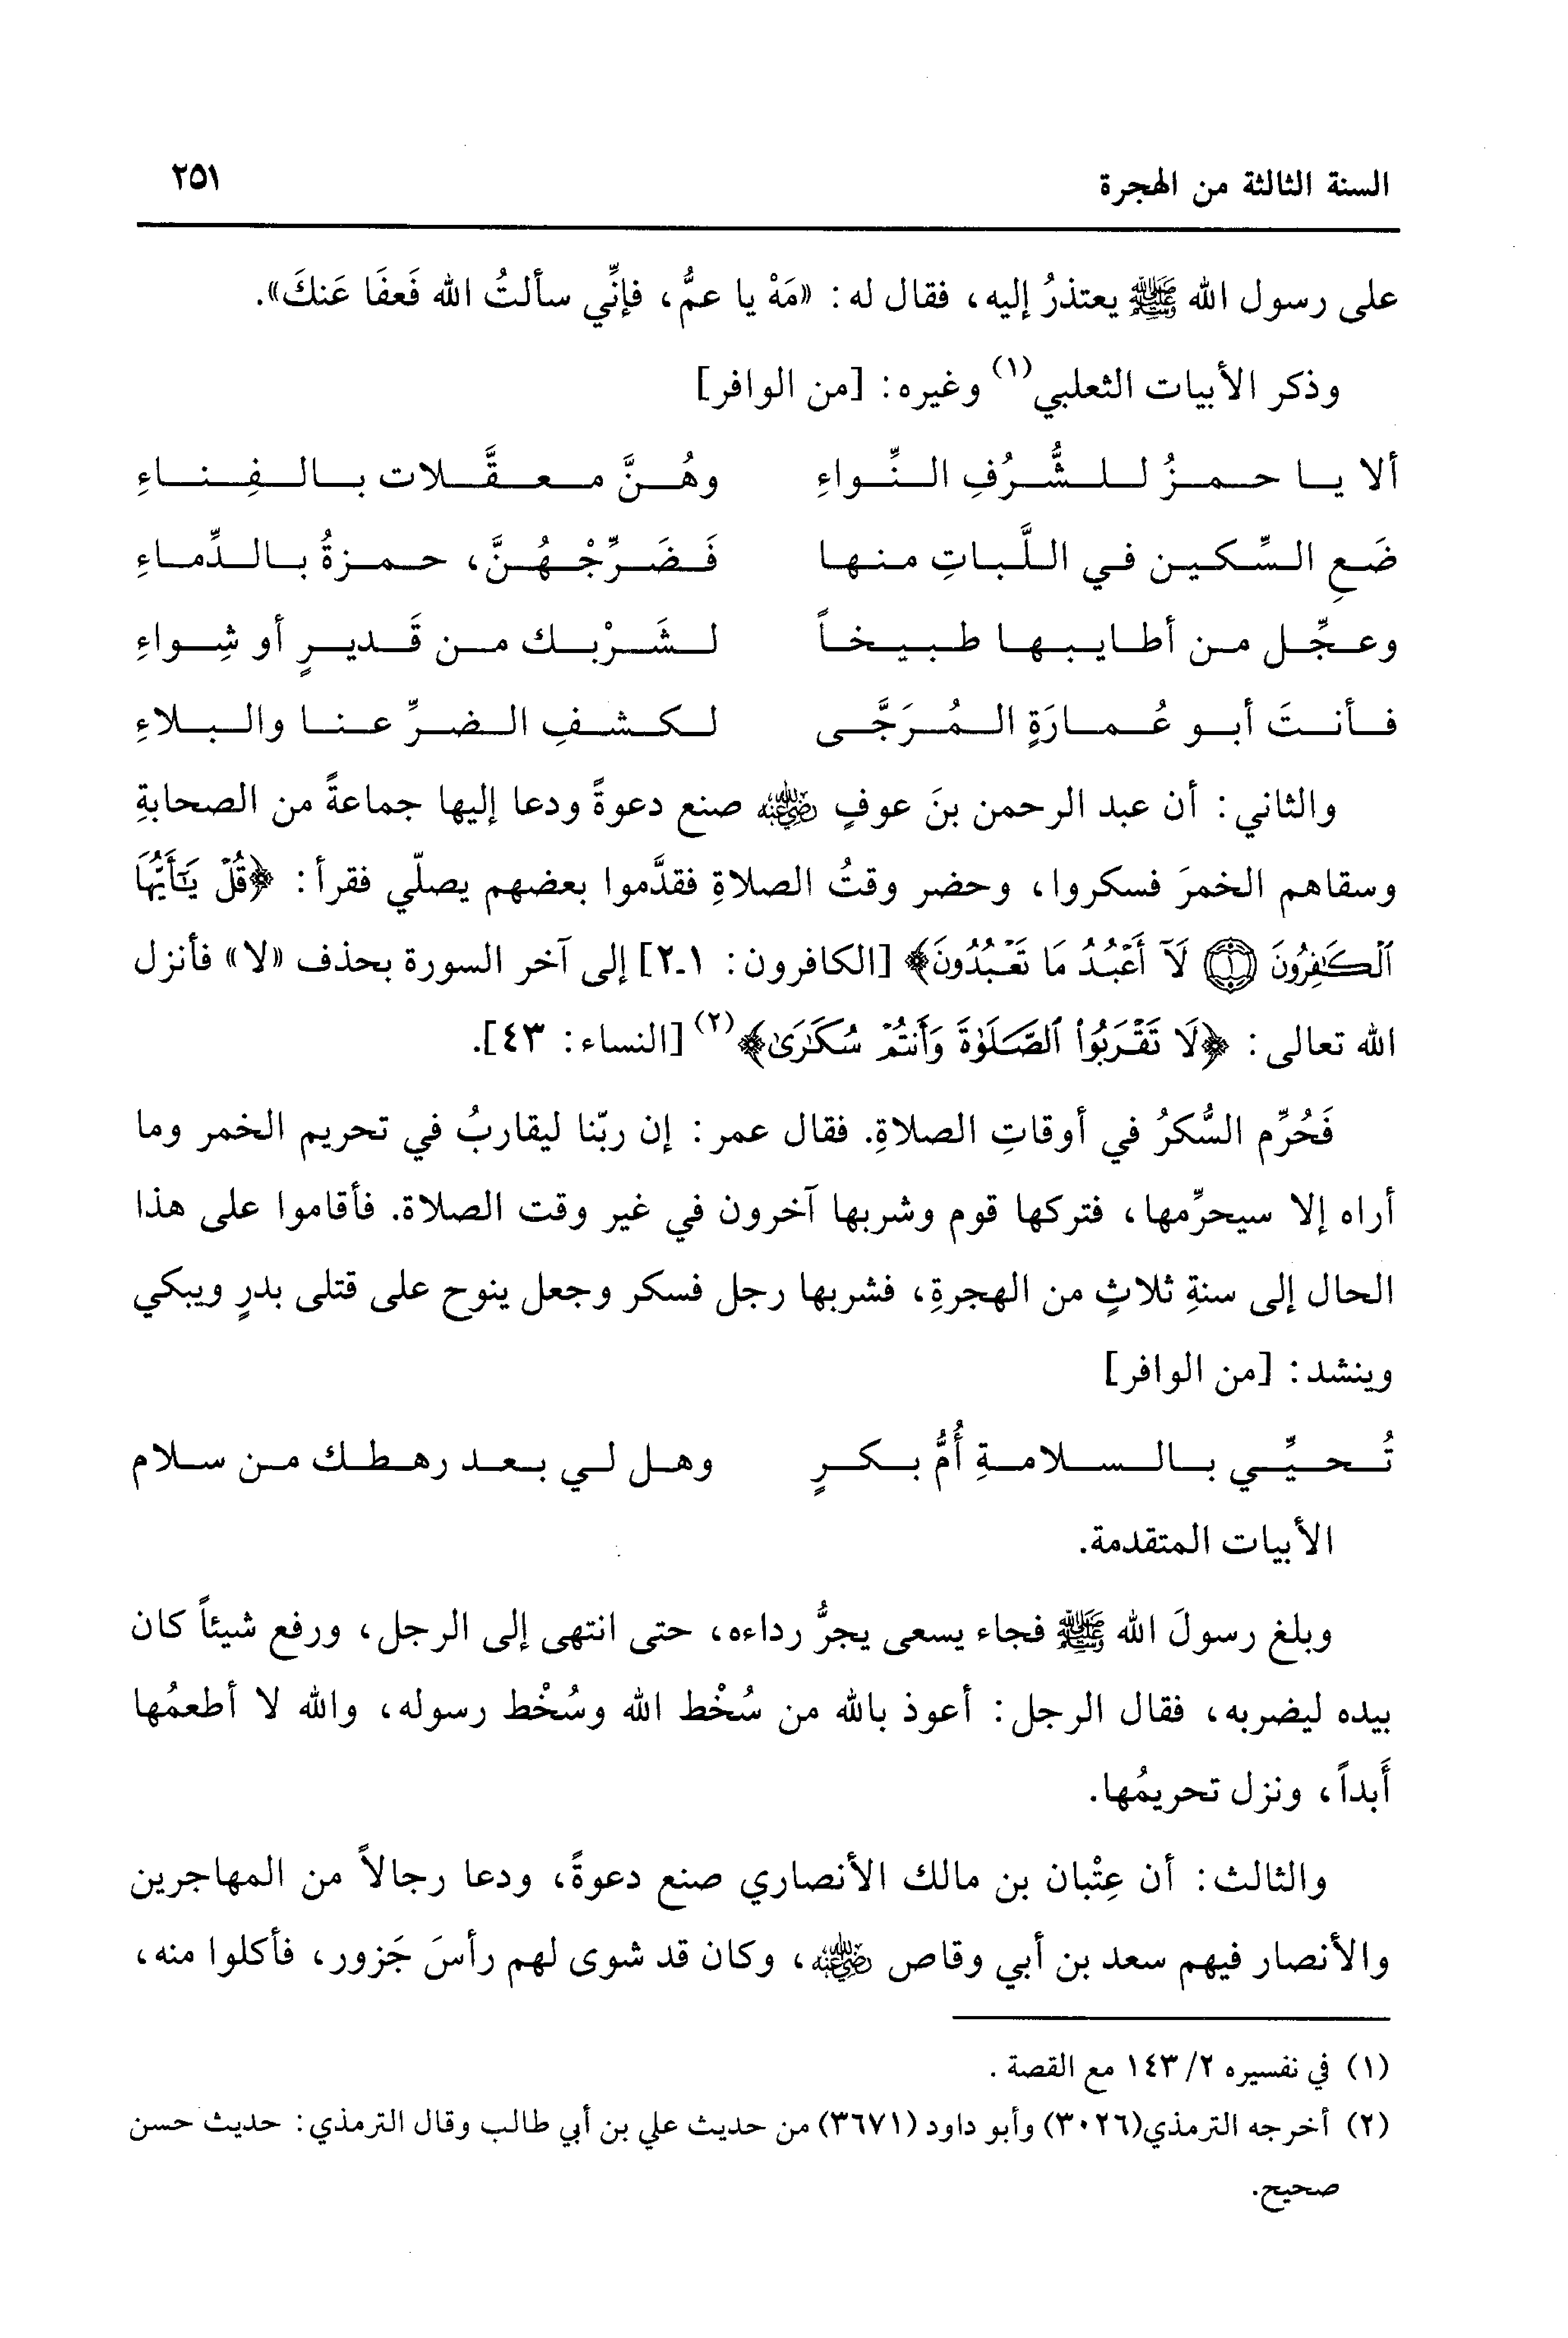 السنة الثالثة من الهجرة ٢٥١
على رسول الله ﷺ يعتذرُ إليه، فقال له: «مَهْ يا عمُّ، فإنِّي سألتُ الله فَعفَا عَنكَ».
وذكر الأبيات الثعلبي(١) وغيره: [من الوافر]
ألا يا حمزُ للشُّرُفِ النِّواءِ وهُنَّ معقَّلات بالفِناءِ
ضَعِ السِّكين في اللَّباتِ منها فَضَرِّجْهُنَّ، حمزةُ بالدِّماءِ
وعجِّل من أطايبها طبيخاً لشَرْبك من قَديرٍ أو شِواءِ
فأنتَ أبو عُمارَةٍ المُرَجَّى لكشفِ الضرِّ عنا والبلاءِ
والثاني: أن عبد الرحمن بنَ عوفٍ رضي الله عنه صنع دعوةً ودعا إليها جماعةً من الصحابةِ
وسقاهم الخمرَ فسكروا، وحضر وقتُ الصلاةِ فقدَّموا بعضهم يصلّي فقرأ: ﴿قُلْ يَٰٓأَيُّهَا
ٱلْكَٰفِرُونَ ١ لَآ أَعْبُدُ مَا تَعْبُدُونَ﴾ [الكافرون: ١-٢] إلى آخر السورة بحذف «لا» فأنزل
الله تعالى: ﴿لَا تَقْرَبُوا۟ ٱلصَّلَوٰةَ وَأَنتُمْ سُكَٰرَىٰ﴾(٢) [النساء: ٤٣].
فَحُرِّم السُّكرُ في أوقاتِ الصلاةِ. فقال عمر: إن ربّنا ليقاربُ في تحريم الخمر وما
أراه إلا سيحرِّمها، فتركها قوم وشربها آخرون في غير وقت الصلاة. فأقاموا على هذا
الحال إلى سنةِ ثلاثٍ من الهجرةِ، فشربها رجل فسكر وجعل ينوح على قتلى بدرٍ ويبكي
وينشد: [من الوافر]
تُحيِّي بالسلامةِ أُمُّ بكرٍ وهل لي بعد رهطك من سلام
الأبيات المتقدمة.
وبلغ رسولَ الله ﷺ فجاء يسعى يجرُّ رداءه، حتى انتهى إلى الرجل، ورفع شيئاً كان
بيده ليضربه، فقال الرجل: أعوذ بالله من سُخْط الله وسُخْط رسوله، والله لا أطعمُها
أَبداً، ونزل تحريمُها.
والثالث: أن عِتْبان بن مالك الأنصاري صنع دعوةً، ودعا رجالاً من المهاجرين
والأنصار فيهم سعد بن أبي وقاص رضي الله عنه، وكان قد شوى لهم رأسَ جَزور، فأكلوا منه،
(١) في تفسيره ٢/ ١٤٣ مع القصة .
(٢) أخرجه الترمذي(٣٠٢٦) وأبو داود (٣٦٧١) من حديث علي بن أبي طالب وقال الترمذي: حديث حسن
صحيح.